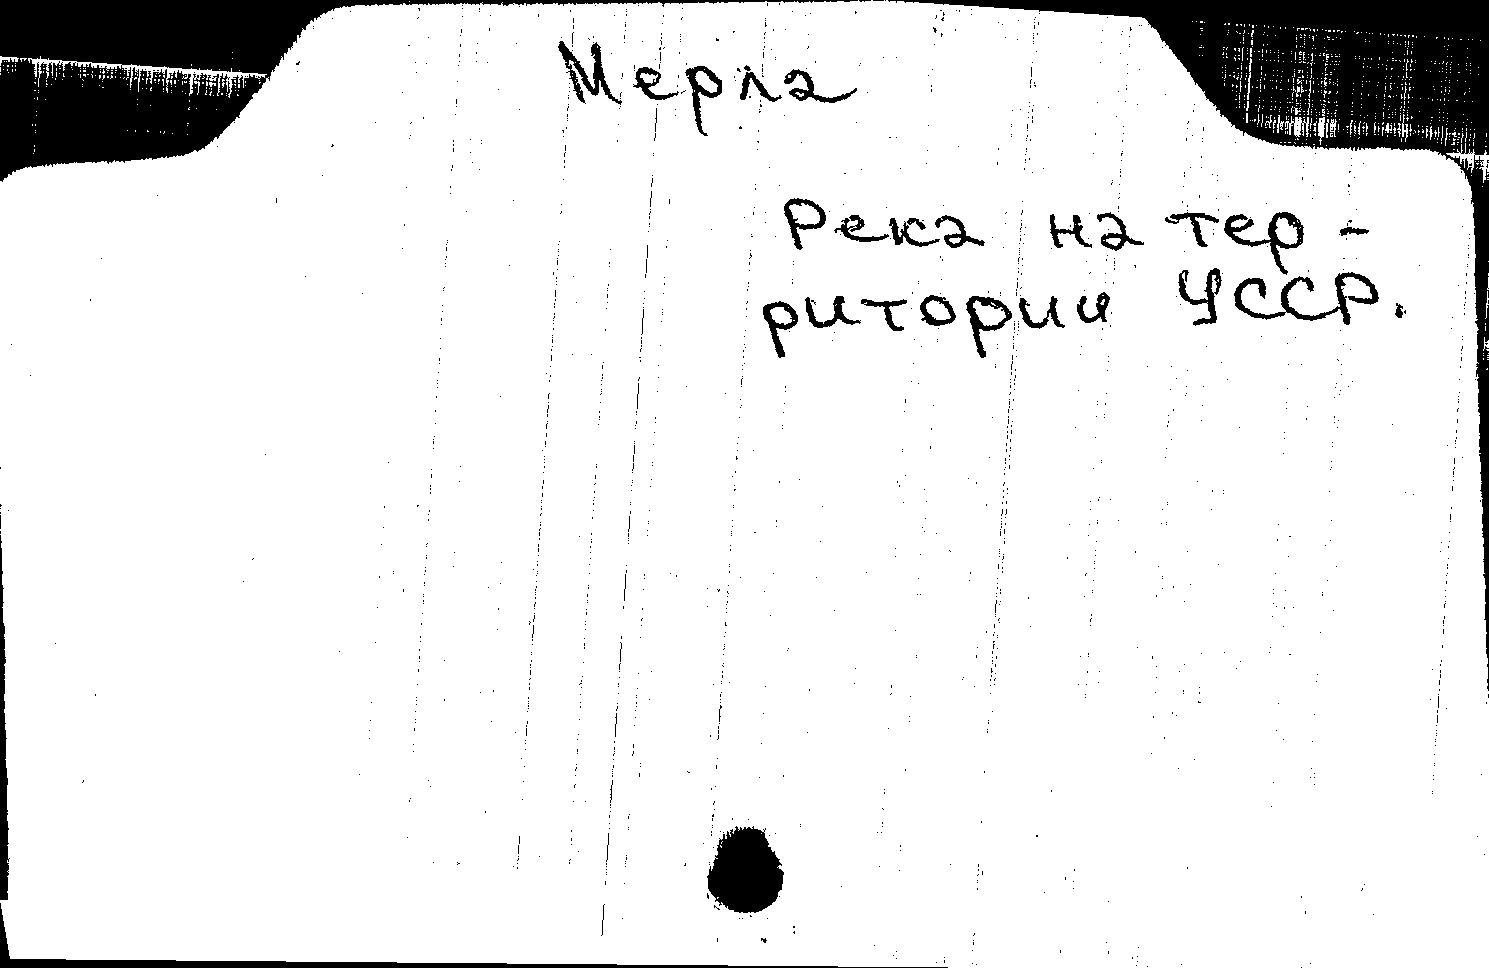 Мерла
Река на тер-
ритории УССР.